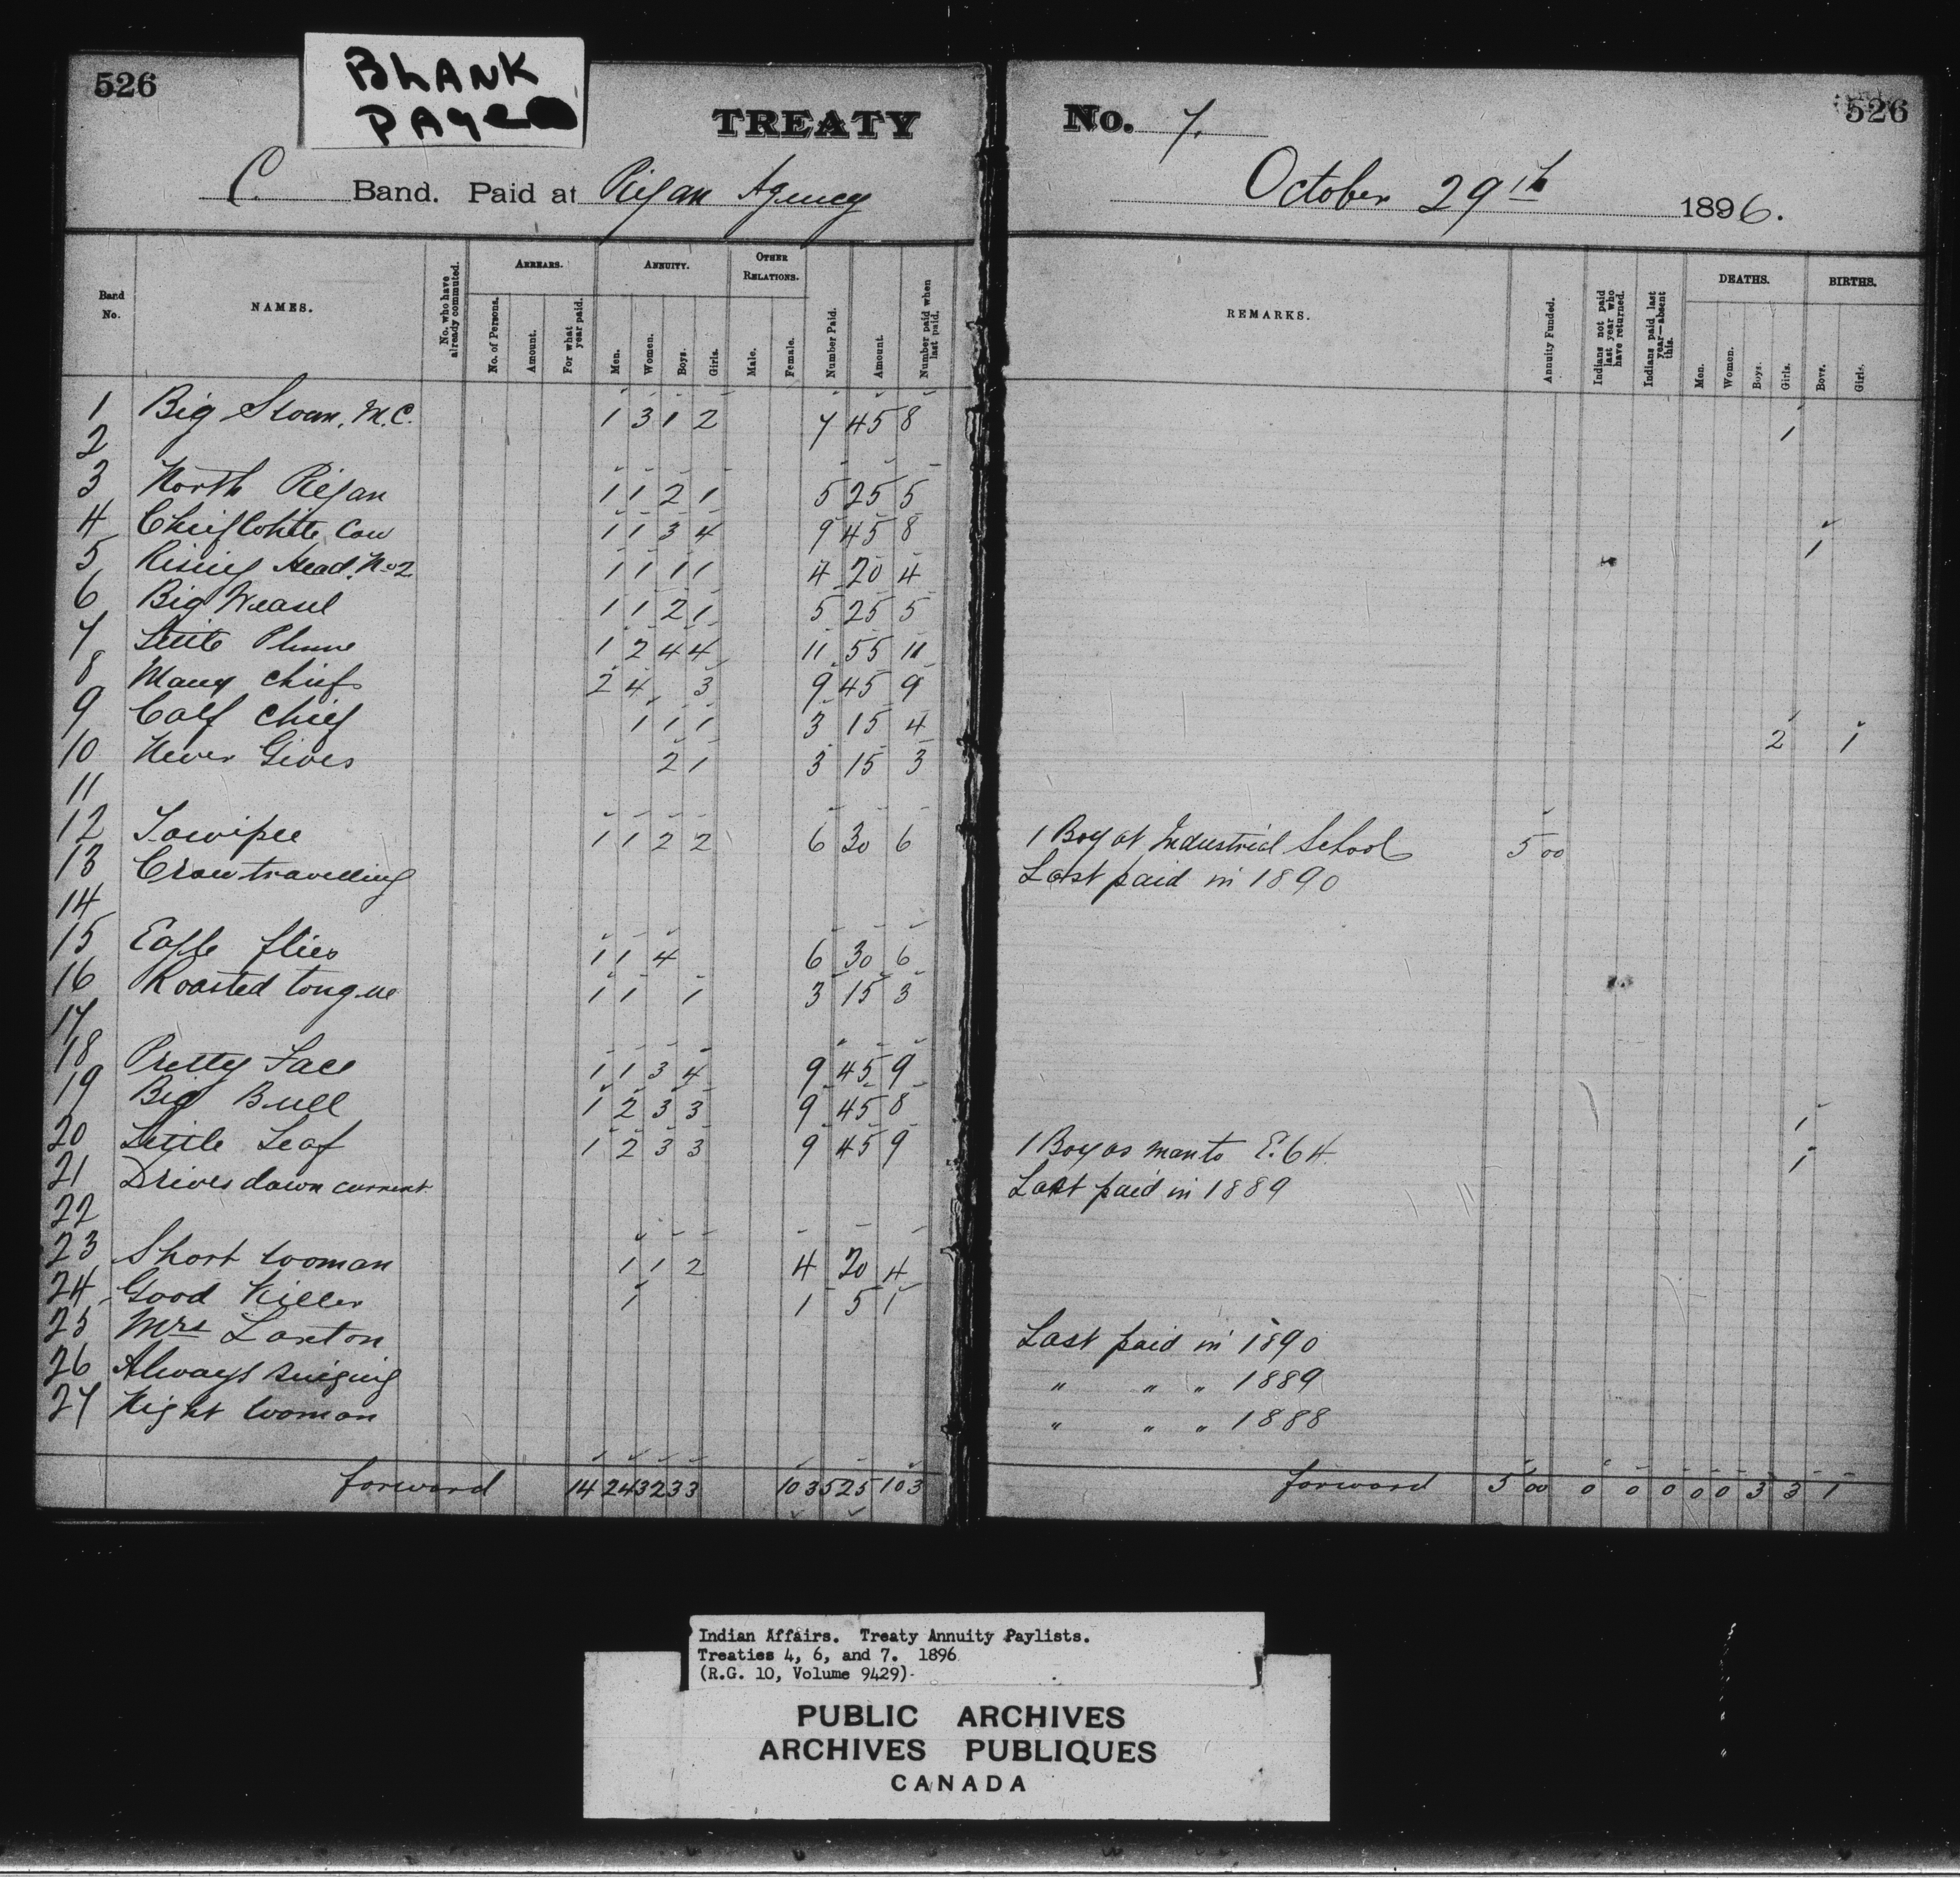 526
BLANK
PAGE
TREATY
C. Band. Paid at Piegan Agency
Band No.
NAMES.
No. who have already commuted.
ARREARS.
No. of Persons.
Amount.
For what year paid.
ANNUITY.
Men.
Women.
Boys.
Girls.
OTHER RELATIONS.
Male.
Female.
Number Paid.
Amount.
Number paid when last paid.
1 Big Swan, M.C. 1 3 1 2 7 45 8
2
3 North Piegan 1 1 2 1 5 25 5
4 Chief White Cow 1 1 3 4 9 45 8
5 Rising Head No 2 1 1 1 1 4 20 4
6 Big Weasel 1 1 2 1 5 25 5
7 Little Plume 1 2 4 4 11 55 11
8 Many Chiefs 2 4 3 9 45 9
9 Calf Chief 1 1 1 3 15 4
10 Never Gives 2 1 3 15 3
11
12 1 1 2 2 6 30 6
13 Crow travelling
14
15 Eagle flies 1 1 4 6 30 6
16 Roasted tongue 1 1 1 3 15 3
17
18 Pretty Face 1 1 3 4 9 45 9
19 Big Bull 1 2 3 3 9 45 8
20 Little Leaf 1 2 3 3 9 45 9
21 Drives down current
22
23 Short woman 1 1 2 4 20 4
24 Good Killer 1 1 5 1
25 Mrs Laxton
26 Always singing
27 Night woman
forward 14 24 32 33 103 525 103
526
No. 7.
October 29th 1896.
REMARKS.
Annuity Funded.
Indians not paid last year who have returned.
Indians paid last year—absent this.
DEATHS.
Men.
Women.
Boys.
Girls.
BIRTHS.
Boys.
Girls.
1
1
2 1
1 Boy at Industrial School 5 00
Last paid in 1890
1
1 Boy as man to E. 64 1
Last paid in 1889
Last paid in 1890
" " " 1889
" " " 1888
forward 5 00 0 0 0 0 0 3 3 1
Indian Affairs. Treaty Annuity Paylists.
Treaties 4, 6, and 7. 1896
(R.G. 10, Volume 9429)
PUBLIC ARCHIVES
ARCHIVES PUBLIQUES
CANADA